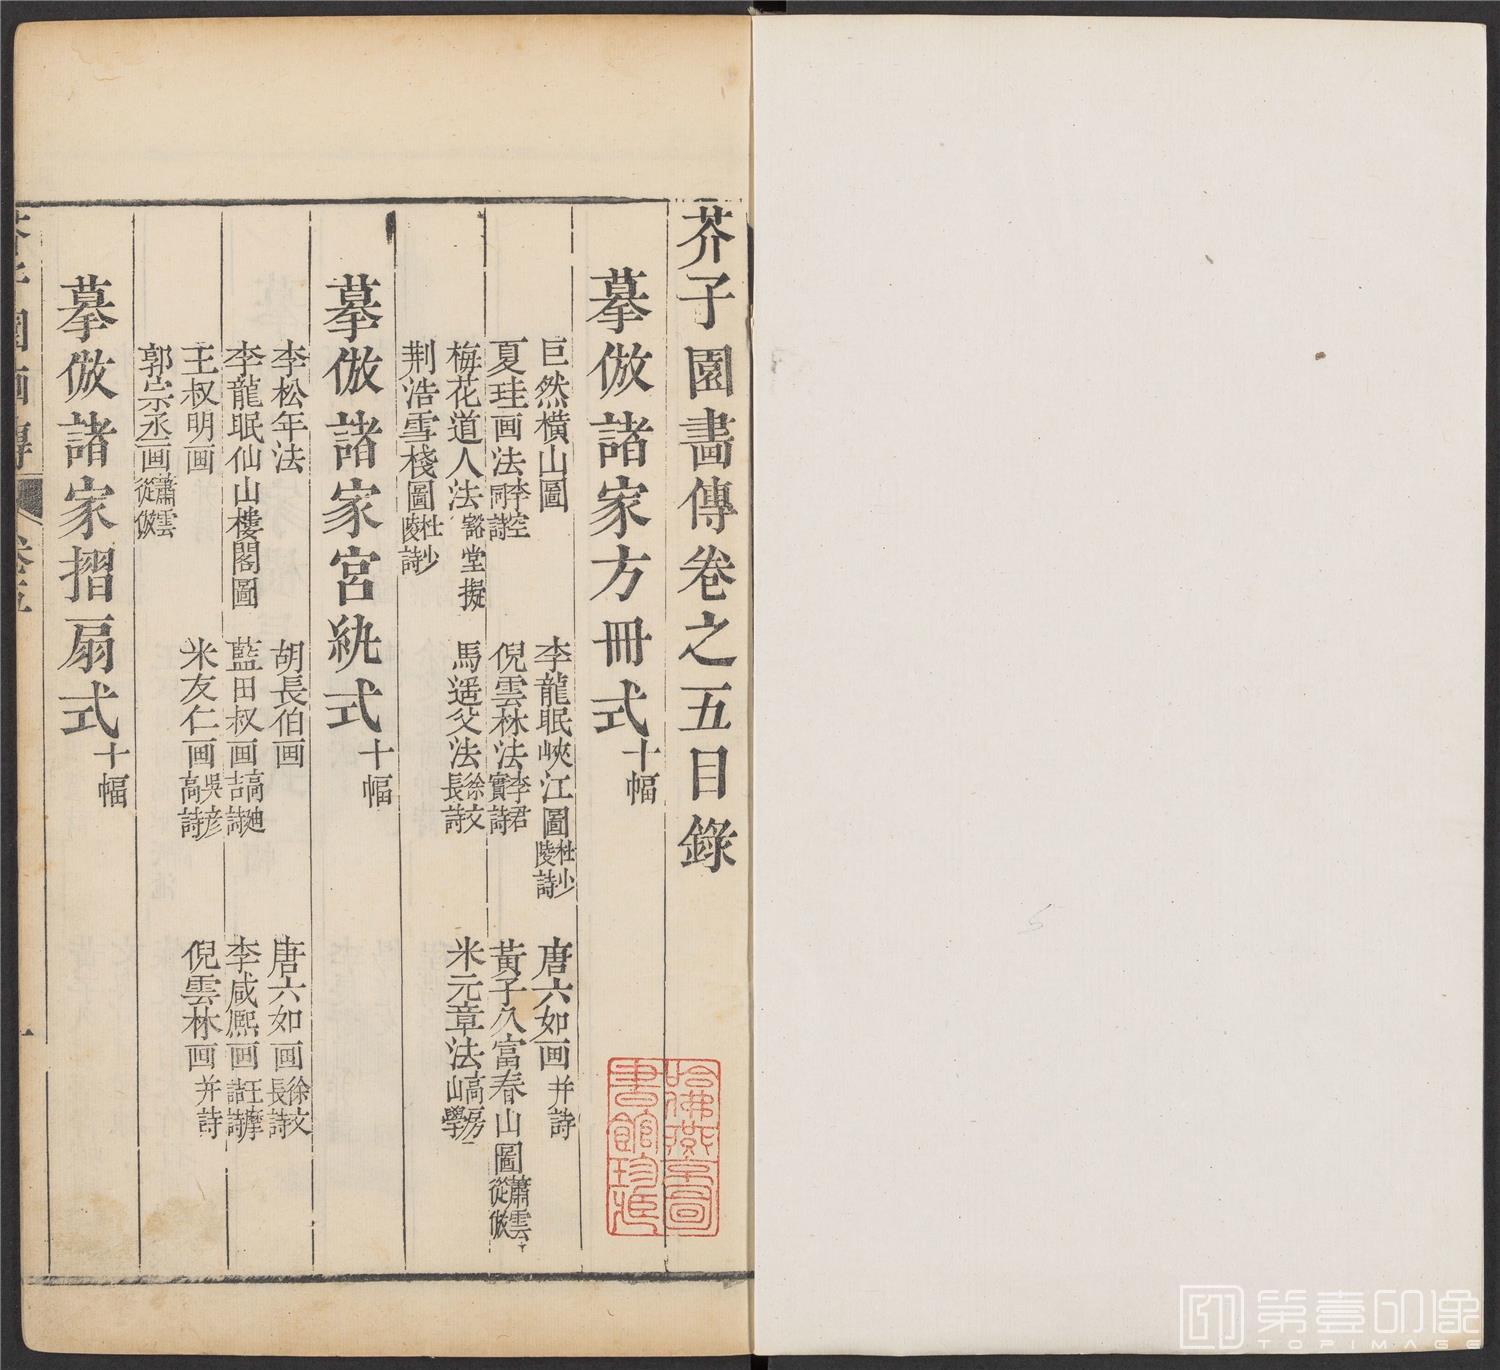 芥子園畫傳卷之五目錄
摹倣諸家方冊式十幅
巨然橫山圖 李龍眠峽江圖杜少陵詩 唐六如画并詩
夏珪画法李空同詩 倪雲林法李君實詩 黃子久富春山圖蕭雲從倣
梅花道人法豁堂擬 馬遥父法徐文長詩 米元章法高房山學
荆浩雪棧圖杜少陵詩
摹倣諸家宮紈式十幅
李松年法 胡長伯画 唐六如画徐文長詩
李龍眠仙山樓閣圖 藍田叔画高廸吉詩 李咸熈画王摩詰詩
王叔明画 米友仁画吳彥高詩 倪雲林画并詩
郭宗丞画蕭雲從倣
摹倣諸家摺扇式十幅
芥子園画傳 卷五 一
哈佛燕京圖書館珍藏
5
第壹印像
TOPIMAGE